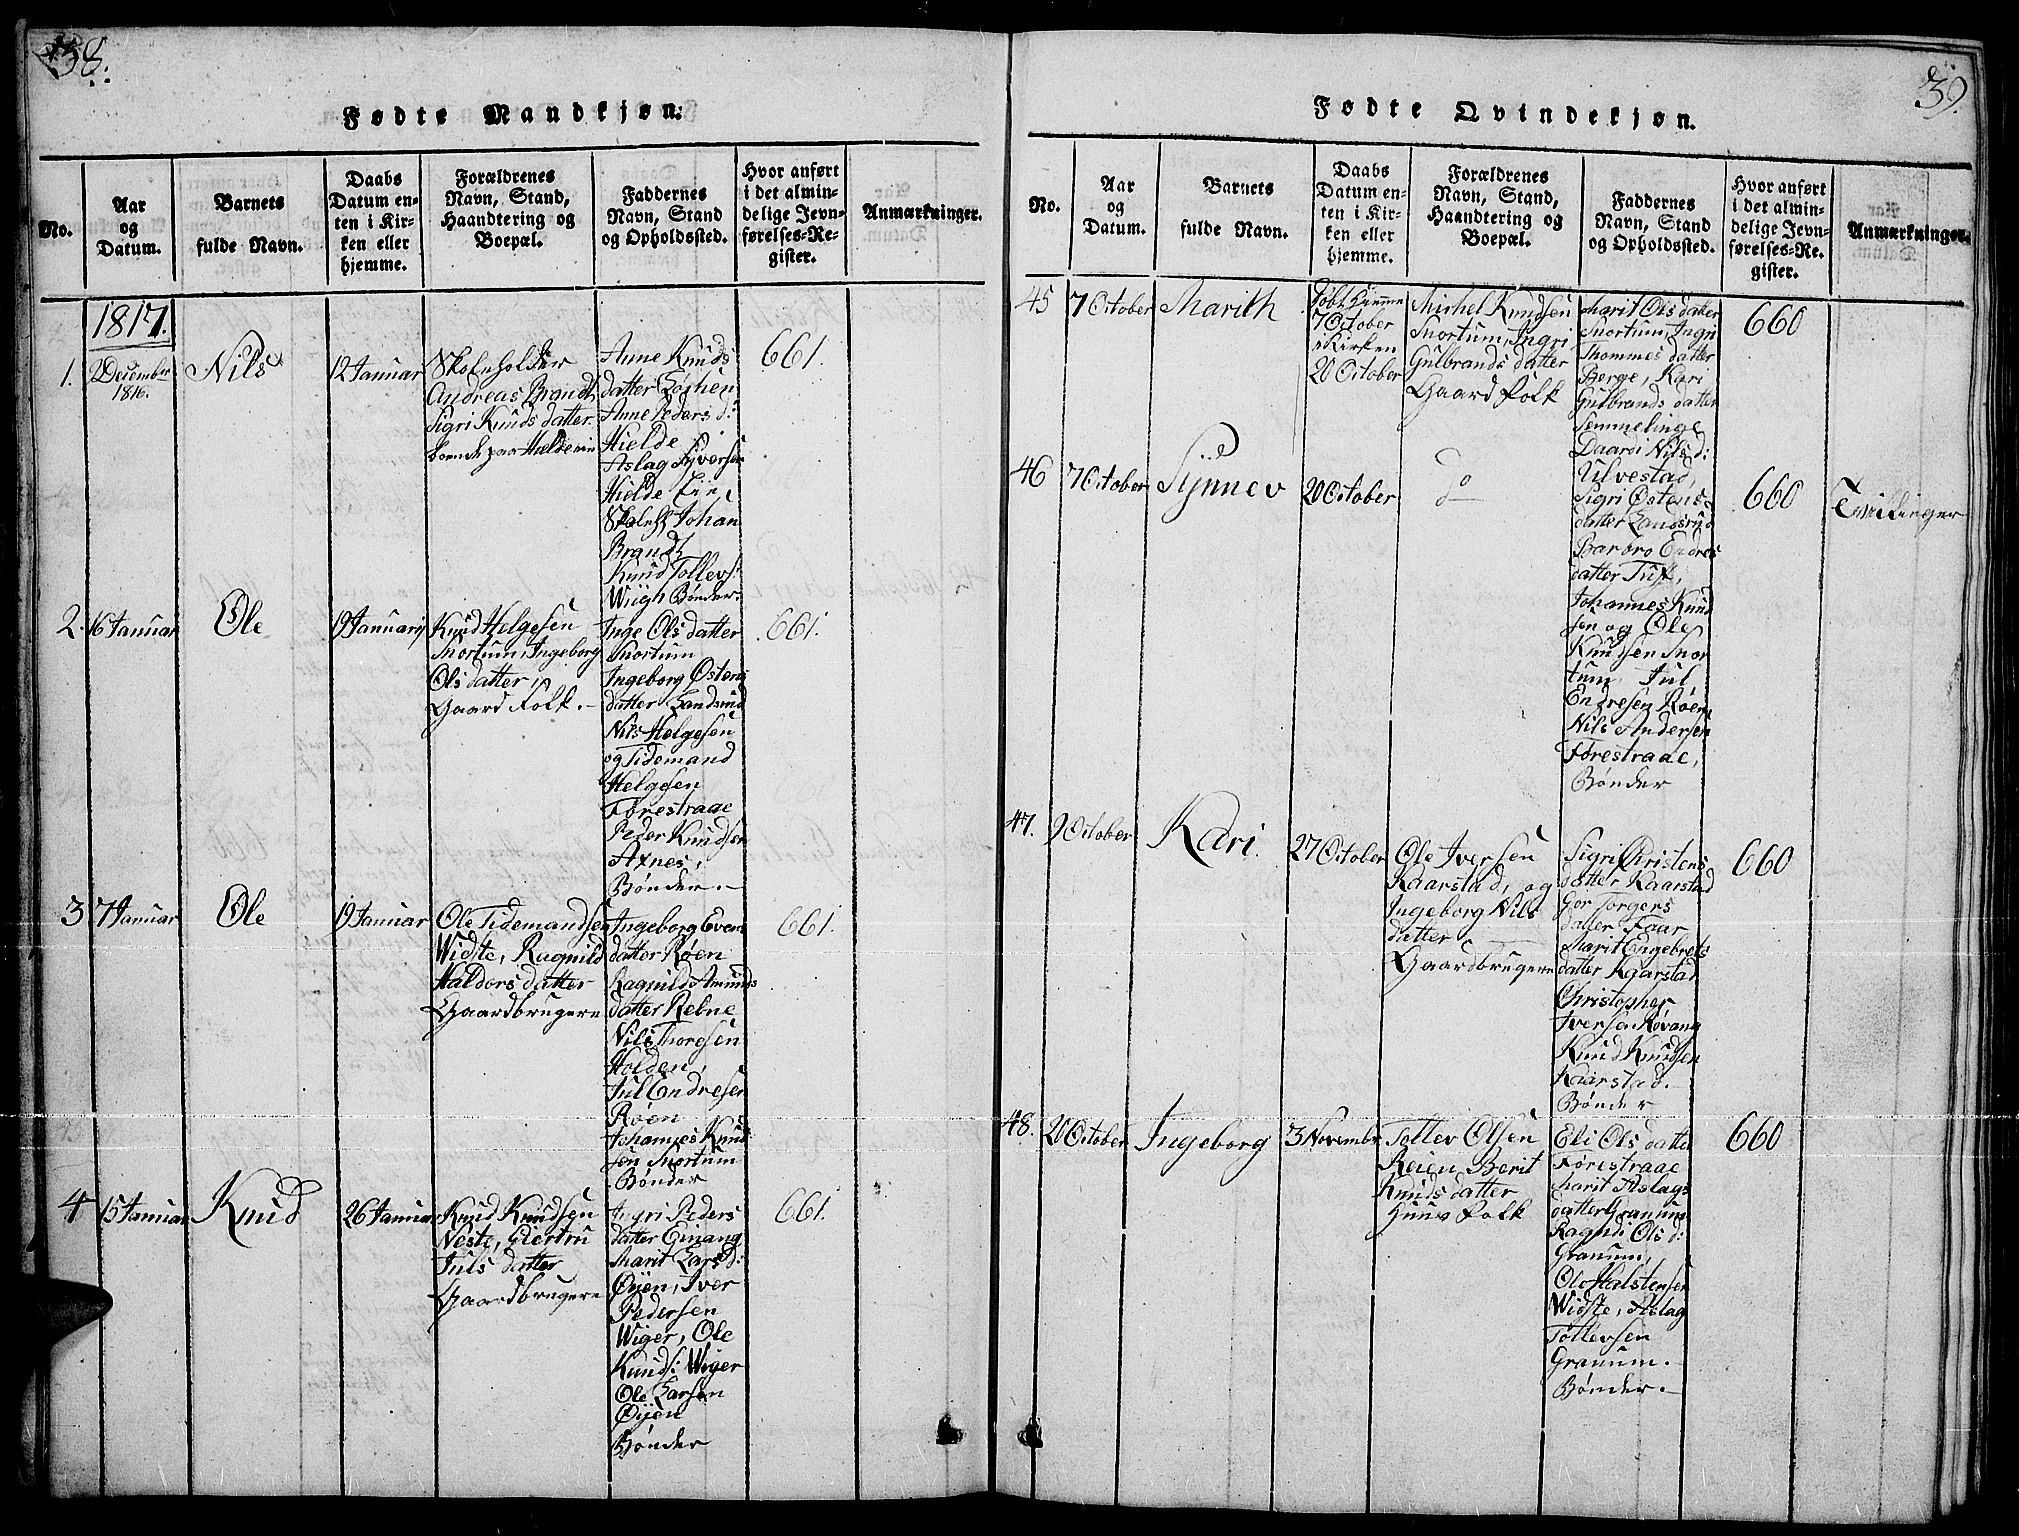 38.
Fødte Mandkjøn.
No.
Aar
og
Datum.
Barnets
fulde Navn.
Daabs
Datum en-
ten i Kir-
ken eller
hjemme.
Forældrenes
Navn, Stand,
Haandtering og
Boepæl.
Faddernes
Navn, Stand
og Opholdssted.
Hvor anført
i det almin-
delige Jevn-
førelses-Re-
gister.
Anmærkninger.
1817.
1.
2 December
1816.
Nils
12 Januar
Skoleholder
Andreas Brandt,
Sigri Knudsdatter
boende paa
Anne Knuds
datter
Anne Peders d:
Hielde
Aslag Syversen
Hielde
Johan
Brandt
Knud Tollevs:
Wiigh Bønder.
661.
2.
16 Januar
Ole
19 Januarij
Knud Helgesen
Snortum, Ingeborg
Olsdatter,
Gaard Folk.
Inge Olsdatter
Snortum
Ingeborg Østens
datter Landsrud
Nils Helgesen
og Tidemand
Helgesen
Førestraae
Peder Knudsen
Axnes,
Bønder.
661.
3
7 Januar
Ole
19 Januar
Ole Tidemandsen
Widste, Ragnild
Haldorsdatter
Gaardbrugere
Ingeborg Evens
datter Røen
Ragnild Amunds
datter Rebne
Nils Thoresen
Holden,
Jul Endresen
Røen
Johannes Knud
sen Snortum
Bønder
661.
4
15 Januar
Knud
26 Januar
Knud Knudsen
Neste, Giertru
Juls datter
Gaardbrugere
Ingri Peders
datter Emang
Marit Lars d:
Øÿen, Iver
Pedersen
Wiger, Ole
Knuds: Wiger
Ole Larsen
Øÿen
Bønder
661.
39.
Fødte Qvindekjøn.
No.
Aar
og
Datum.
Barnets
fulde Navn.
Daabs
Datum en-
ten i Kir-
ken eller
hjemme.
Forældrenes
Navn, Stand,
Haandtering og
Boepæl.
Faddernes
Navn, Stand
og Opholdssted.
Hvor anført
i det almin-
delige Jevn-
førelses-Re-
gister.
Anmærkninger.
45
7 October
Marith
Døbt hjemme
7 October
i Kirken
20 October
Michel Knudsen
Snortum, Ingri
Gulbrands datter
Gaard Folk
Marit Olsdatter
Snortum, Ingri
Thommes datter
Berge, Kari
Gulbrands datter
Semmelinge
660
46
7 October
Synnev
20 October
do
Nils d:
Ulvestad,
Sigri Østens
datter Landsrud
Barbro Endres
datter Tuf,
Johannes Knud
sen og Ole
Knudsen Snor
tum, Jul
Endresen Røen
Nils Andersen
Førestraae,
Bønder
660
Tvillinger
47.
9 October
Kari
27 October
Ole Iversen
Kaarstad, og
Ingeborg Nils
datter
Gaardbrugere
Sigri Christens
datter Kaarstad
Gor Jorgers
datter Faar
Marit Engebrets
datter Kaarstad
Christopher
Iversen Røvang
Knud Knudsen
Kaarstad.
Bønder
660
48.
20 October
Ingeborg
3 Novembr.
Tollev Olsen
Reien, Berit
Knudsdatter
Huus Folk
Eli Olsdatter
Førestraae
Marit Aslags
datter Granum
Ragnild Ols d:
Granum,
Ole Halstensen
Widste, Aslag
Tollevsen
Granum.
Bønder.
660